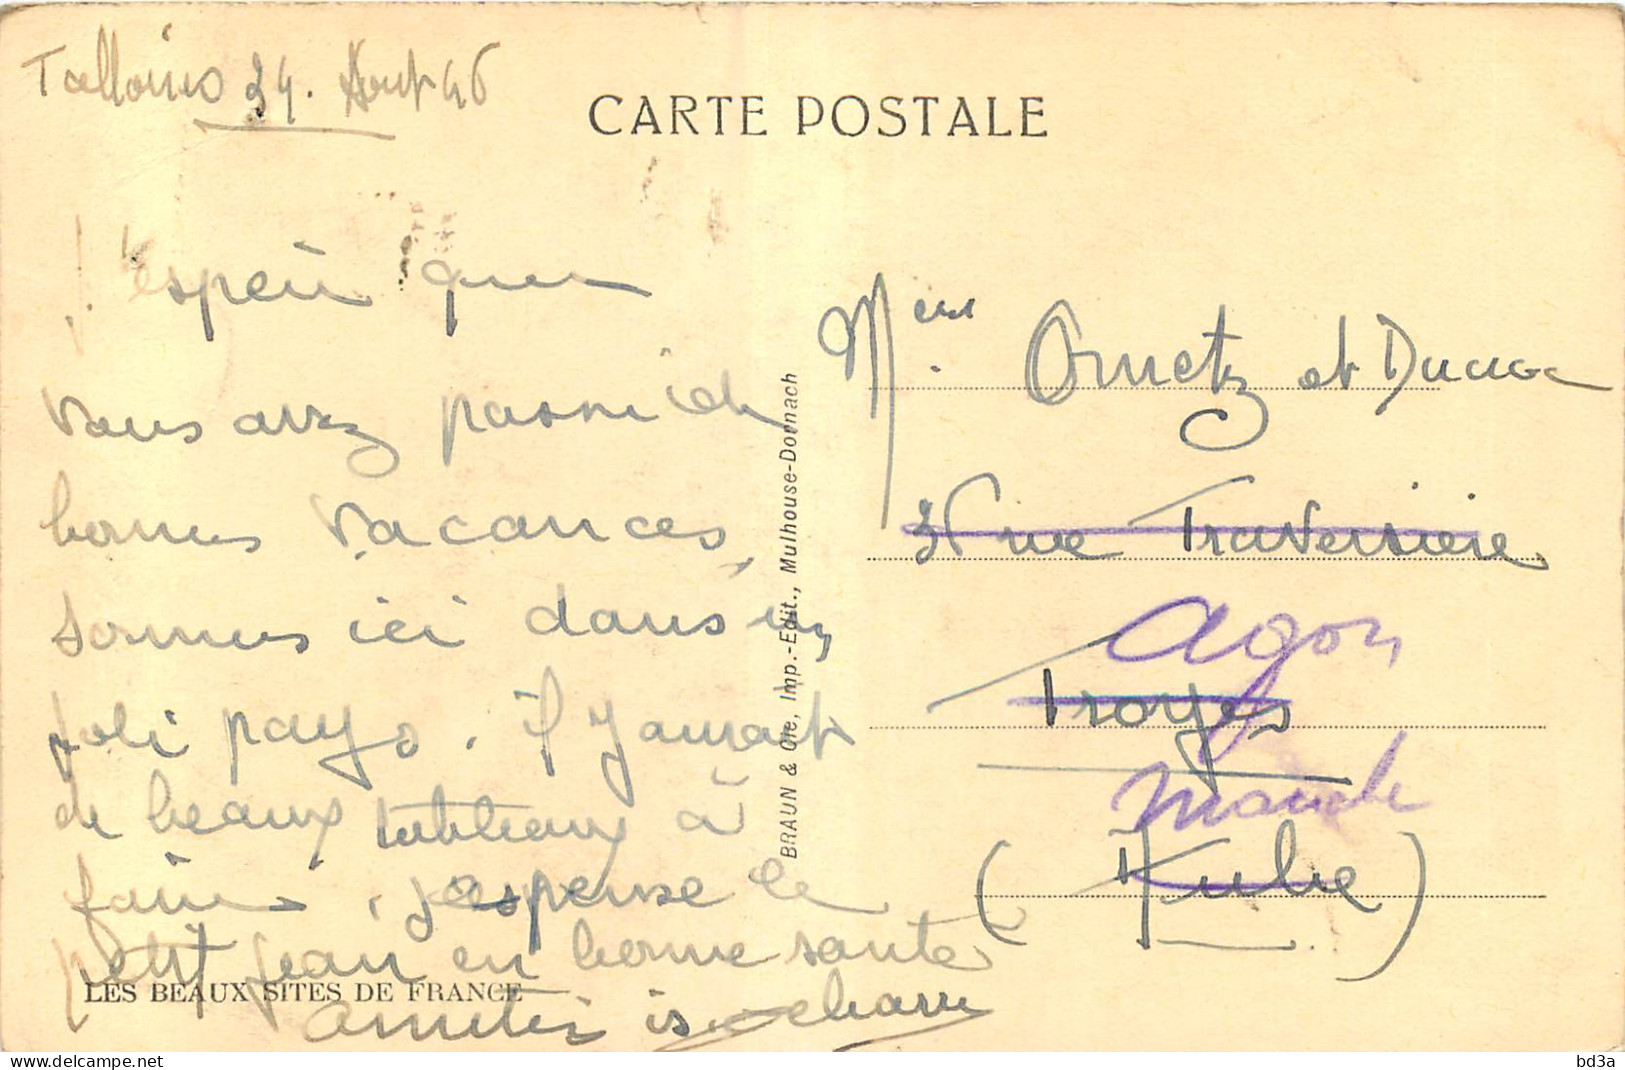 Talloires 24. Aout 46
CARTE POSTALE
J'espère que
vous avez passé de
bonnes vacances,
sommes ici dans un
joli pays. il y aurait
de beaux tableaux à
faire. J'espère le
petit Jean en bonne santé
amitiés
LES BEAUX SITES DE FRANCE
BRAUN & Cie, Imp.-Edit., Mulhouse-Dornach
Mmes Ornetz et
rue Traversière
Agon
Troyes
Manche
(Aube)
delcampe.net
bd3a